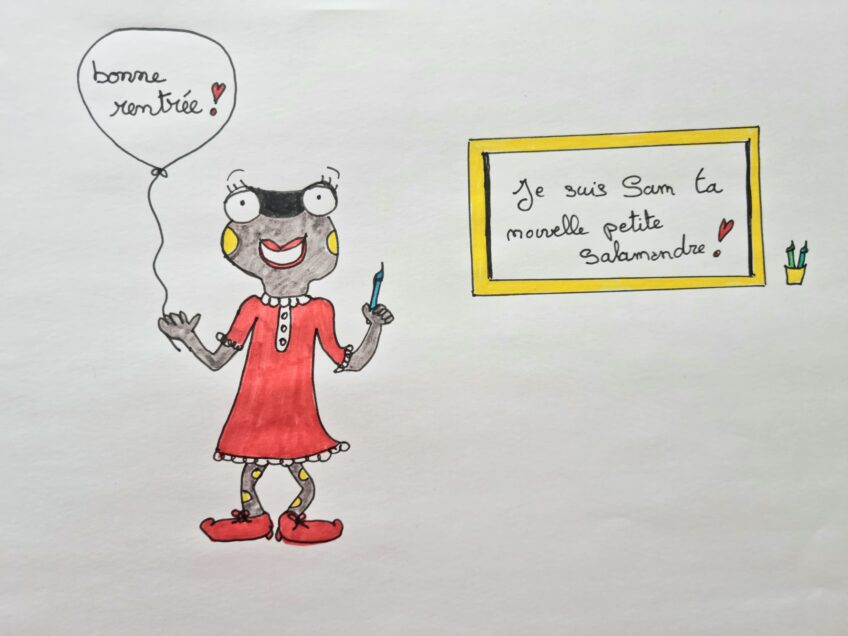 bonne
rentrée !
Je suis Sam ta
nouvelle petite
salamandre !